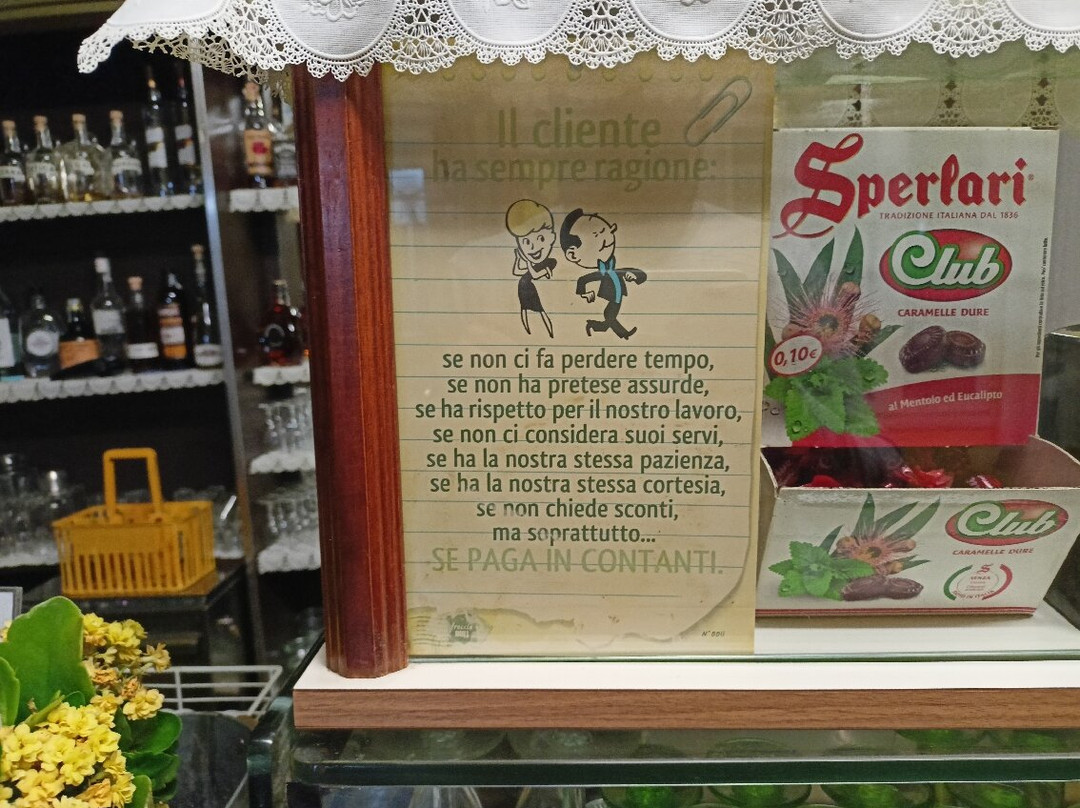 Il cliente
ha sempre ragione:
se non ci fa perdere tempo,
se non ha pretese assurde,
se ha rispetto per il nostro lavoro,
se non ci considera suoi servi,
se ha la nostra stessa pazienza,
se ha la nostra stessa cortesia,
se non chiede sconti,
ma soprattutto...
SE PAGA IN CONTANTI.
Sperlari
TRADIZIONE ITALIANA DAL 1836
Club
CARAMELLE DURE
0,10€
al Mentolo ed Eucalipto
Club
CARAMELLE DURE